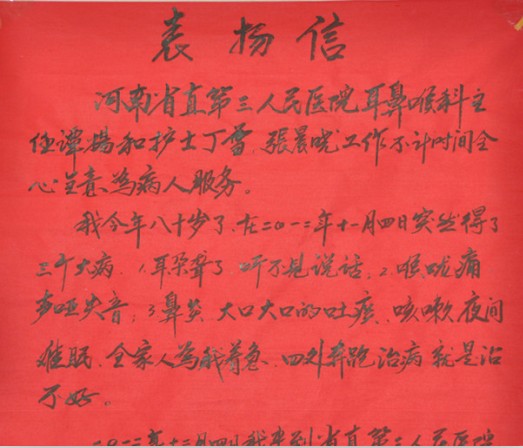 表扬信
河南省直第三人民医院耳鼻喉科主
任谭扬和护士丁蕾、张晨悦工作不计时间全
心全意为病人服务。
我今年八十岁了,在二〇一二年十一月四日突然得了
三个大病,1、耳朵聋了听不见说话,2、喉咙痛
声哑失音;3、鼻炎、大口大口的吐痰、咳嗽、夜间
难眠、全家人为我着急、四处奔跑治病就是治
不好。
二〇一二年十二月四日我来到省直第三人民医院